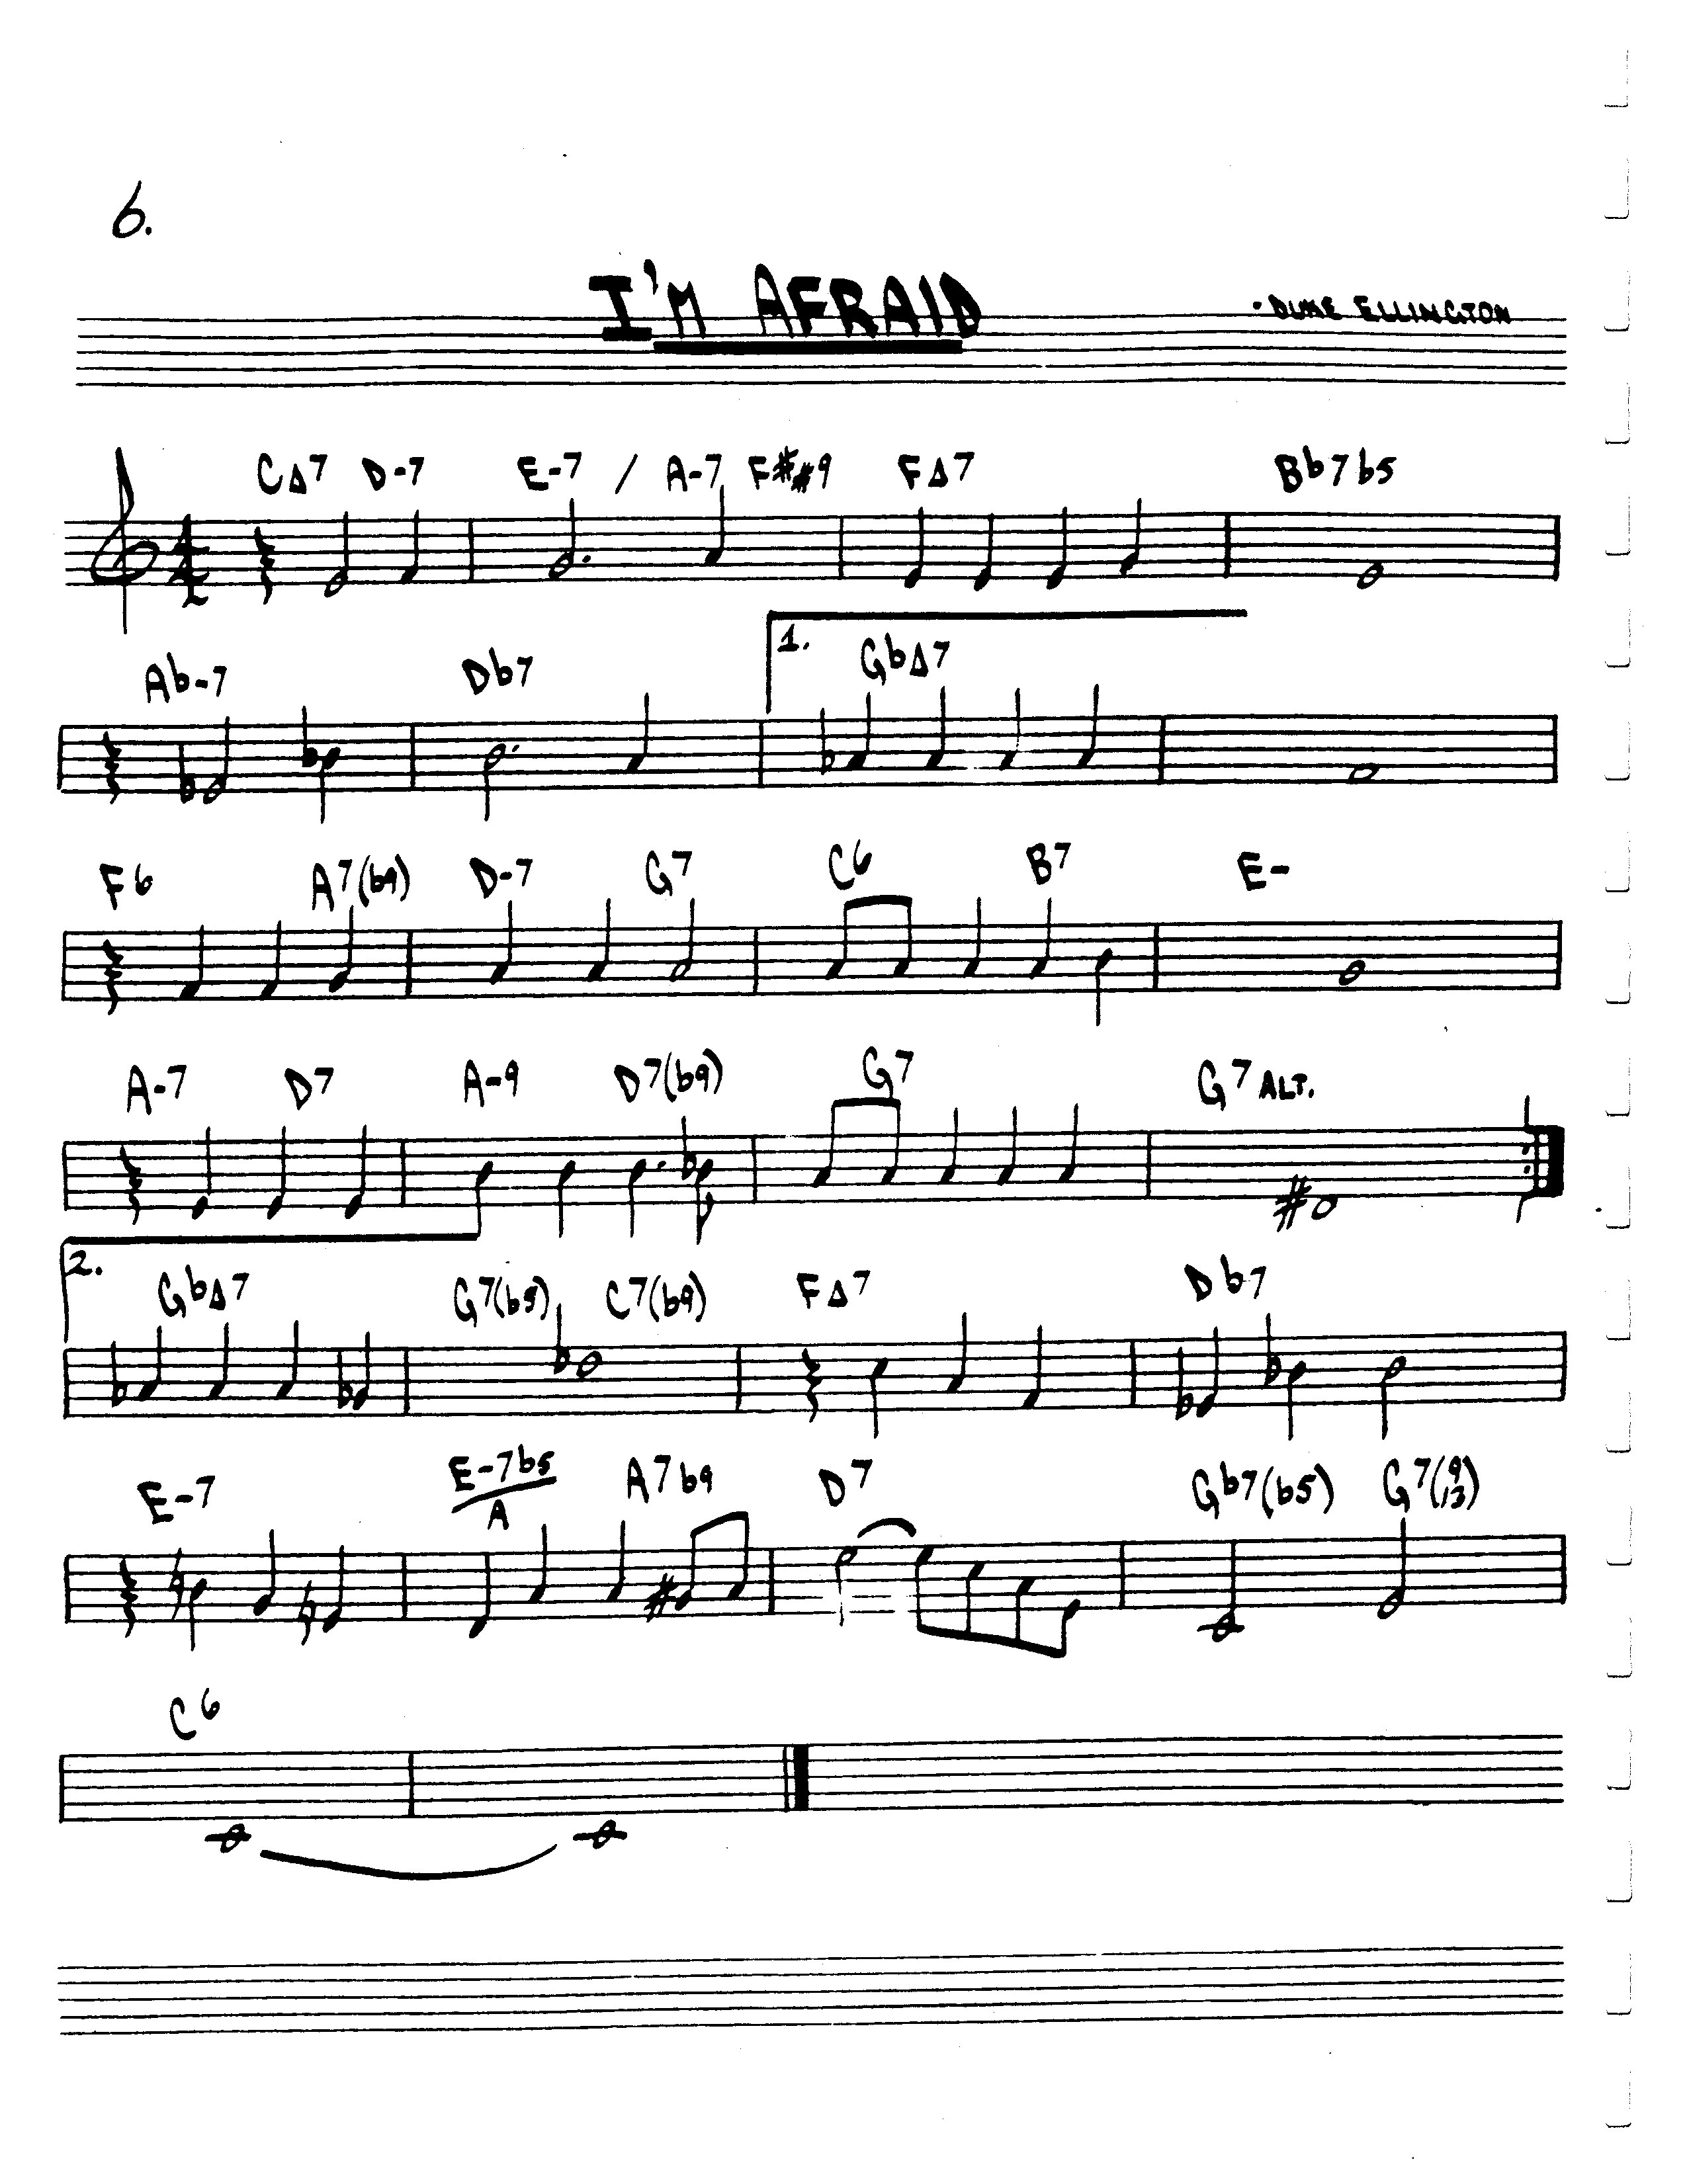 6.
I'M AFRAID
- DUKE ELLINGTON
CΔ7 D-7 E-7 / A-7 F##9 FΔ7 Bb7b5
1.
Ab-7 Db7 GbΔ7
F6 A7(b9) D-7 G7 C6 B7 E-
A-7 D7 A-9 D7(b9) G7 G7 ALT.
2.
GbΔ7 G7(b5) C7(b9) FΔ7 Db7
E-7 E-7b5/A A7b9 D7 Gb7(b5) G7(9 13)
C6